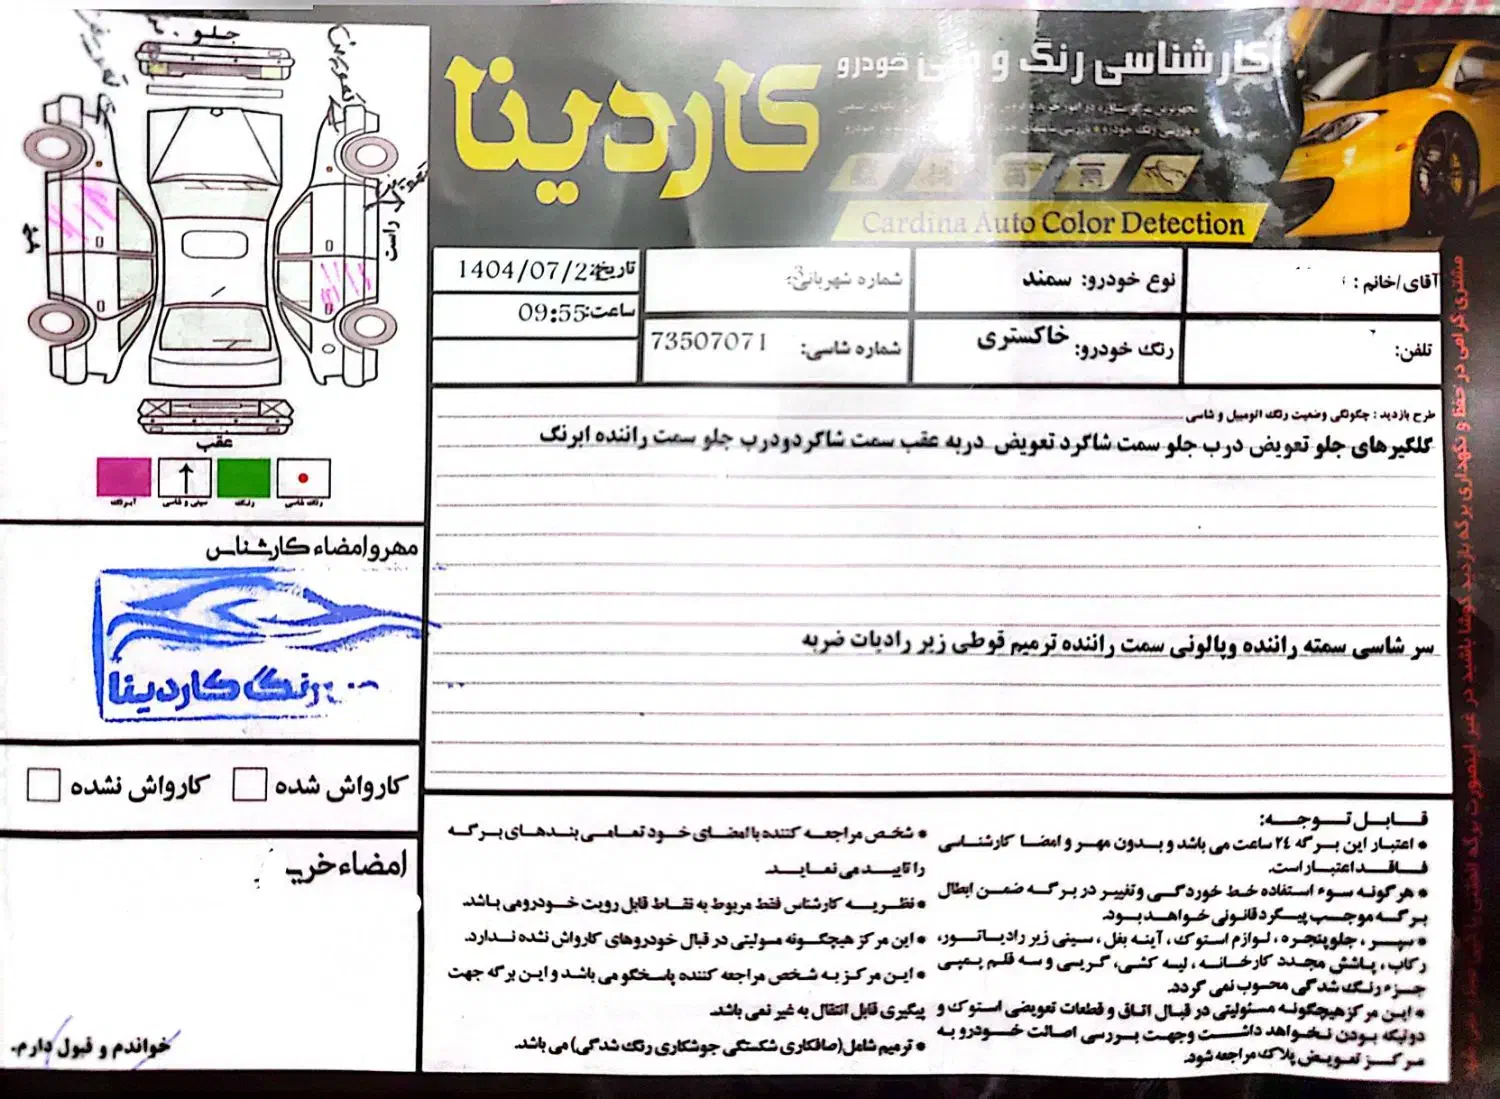 کارشناسی رنگ و فنی خودرو
کاردینا
Cardina Auto Color Detection
آقای/خانم :
نوع خودرو: سمند
شماره شهربانی:
تاریخ: 1404/07/22
ساعت: 09:55
تلفن:
رنگ خودرو: خاکستری
شماره شاسی: 73507071
طرح بازدید : چگونگی وضعیت رنگ اتومبیل و شاسی
گلگیرهای جلو تعویض درب جلو سمت شاگرد تعویض دربه عقب سمت شاگردودرب جلو سمت راننده ابرنگ
سر شاسی سمته راننده وپالونی سمت راننده ترمیم قوطی زیر رادیات ضربه
جلو
تعویض
تعویض
راست
چپ
عقب
رنگ شاسی
رنگ
سینی و شاسی
آبرنگ
مهروامضاء کارشناس
رنگ کاردینا
کارواش شده
کارواش نشده
امضاء خرید
خواندم و قبول دارم.
قابل توجه:
* اعتبار این برگه ۲۴ ساعت می باشد و بدون مهر و امضا کارشناسی
فاقد اعتبار است.
* هرگونه سوء استفاده خط خوردگی وتغییر در برگه ضمن ابطال
برگه موجب پیگرد قانونی خواهد بود.
* سپر ، جلوپنجره ، لوازم استوک ، آینه بغل ، سینی زیر رادیاتور،
رکاب ، پاشش مجدد کارخانه ، لیه کشی، گریی و سه قلم پمپی
جزء رنگ شدگی محسوب نمی گردد.
* این مرکز هیچگونه مسئولیتی در قبال اتاق و قطعات تعویضی استوک و
دوتیکه بودن نخواهد داشت وجهت بررسی اصالت خودرو به
مرکز تعویض پلاک مراجعه شود.
* شخص مراجعه کننده با امضای خود تمامی بندهای برگه
را تایید می نماید.
* نظریه کارشناس فقط مربوط به نقاط قابل رویت خودرومی باشد.
* این مرکز هیچگونه مسولیتی در قبال خودروهای کارواش نشده ندارد.
* این مرکز به شخص مراجعه کننده پاسخگو می باشد و این برگه جهت
پیگیری قابل انتقال به غیر نمی باشد.
* ترمیم شامل(صافکاری شکستگی جوشکاری رنگ شدگی) می باشد.